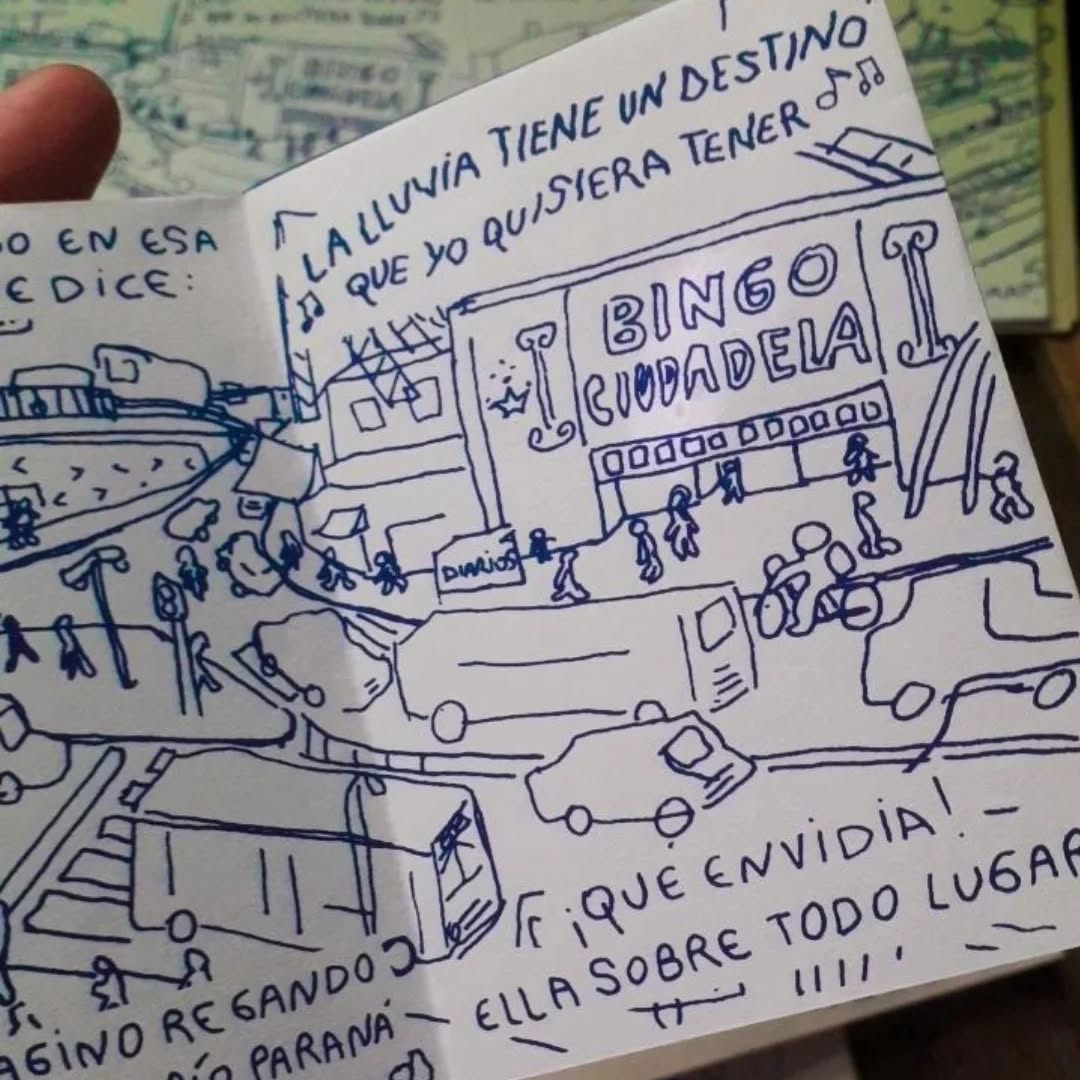 O EN ESA
E DICE:
LA LLUVIA TIENE UN DESTINO
QUE YO QUISIERA TENER
BINGO
CIUDADELA
DIARIOS
AGINO REGANDO
ÍO PARANÁ
¡QUÉ ENVIDIA!
ELLA SOBRE TODO LUGAR